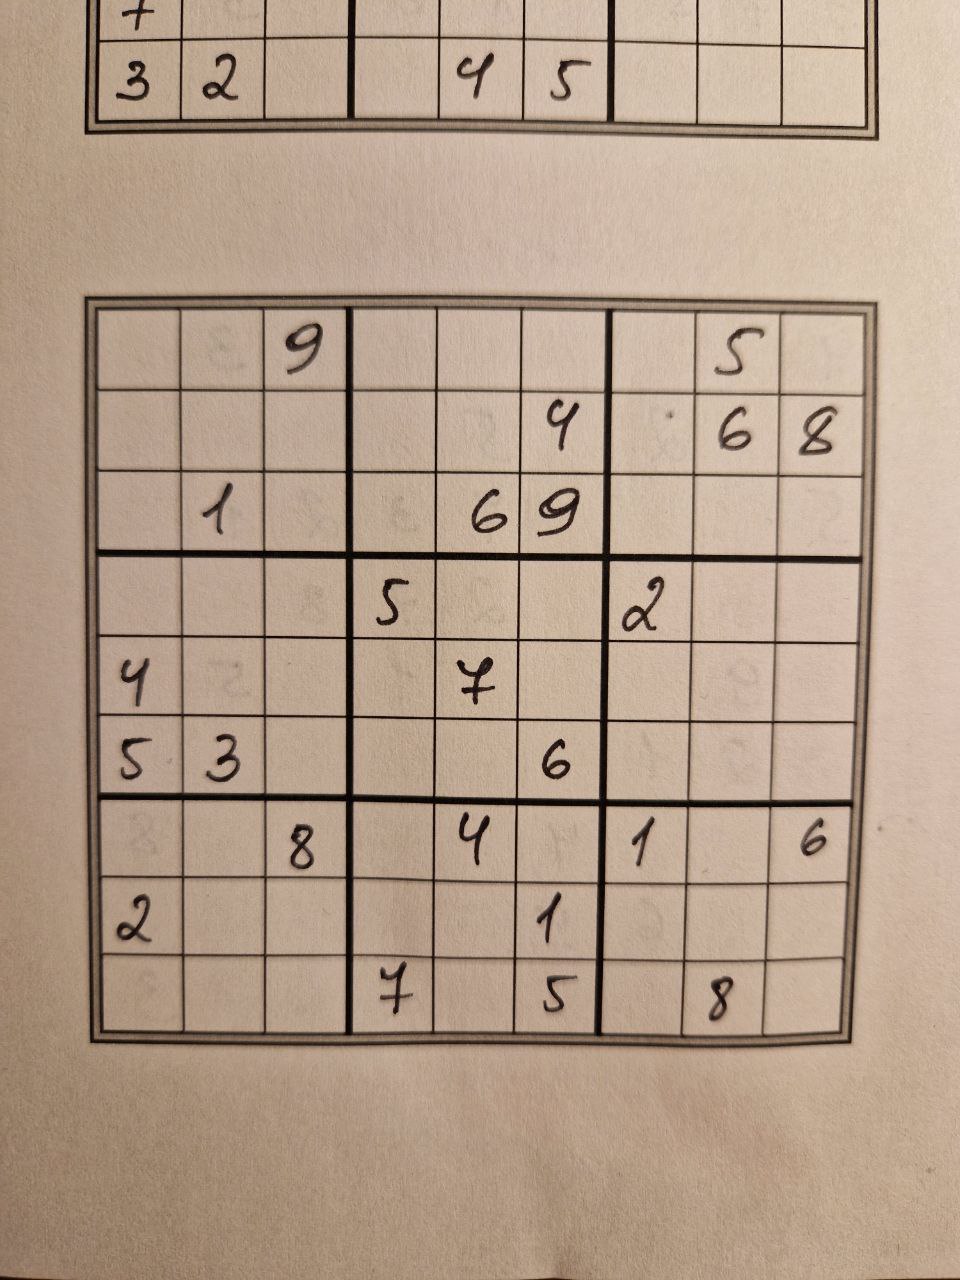 7
3 2 4 5
9 5
4 6 8
1 6 9
5 2
4 7
5 3 6
8 4 1 6
2 1
7 5 8